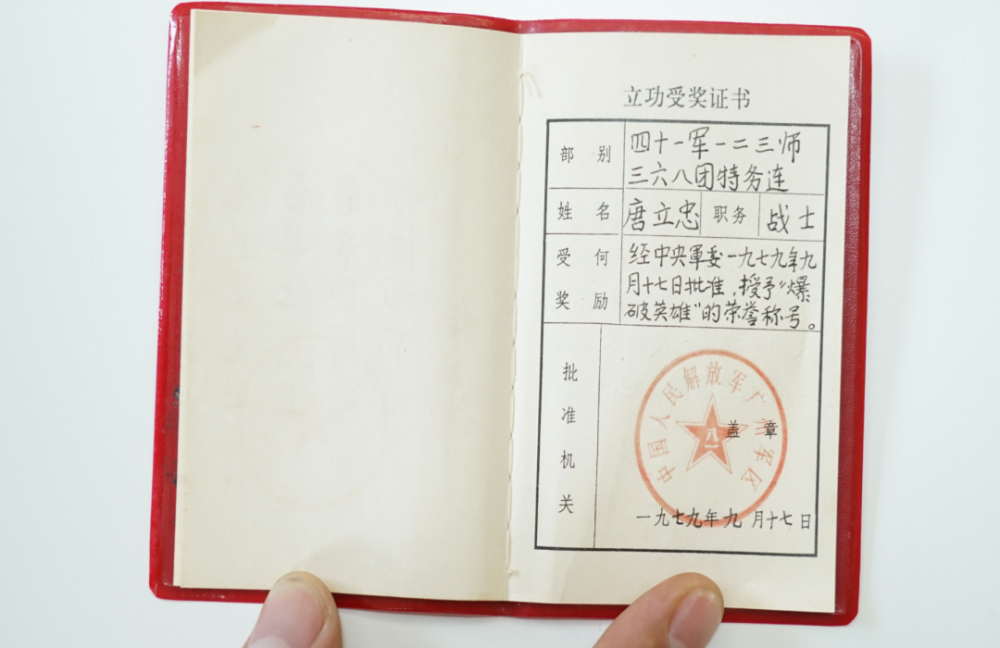 立功受奖证书
部 别 四十一军一二三师
三六八团特务连
姓 名 唐立忠 职务 战士
受 何 经中央軍委一九七九年九
奖 励 月十七日批准，授予“爆
破英雄”的荣誉称号。
批准机关
中国人民解放军广州军区
八一
盖 章
一九七九年九月十七日